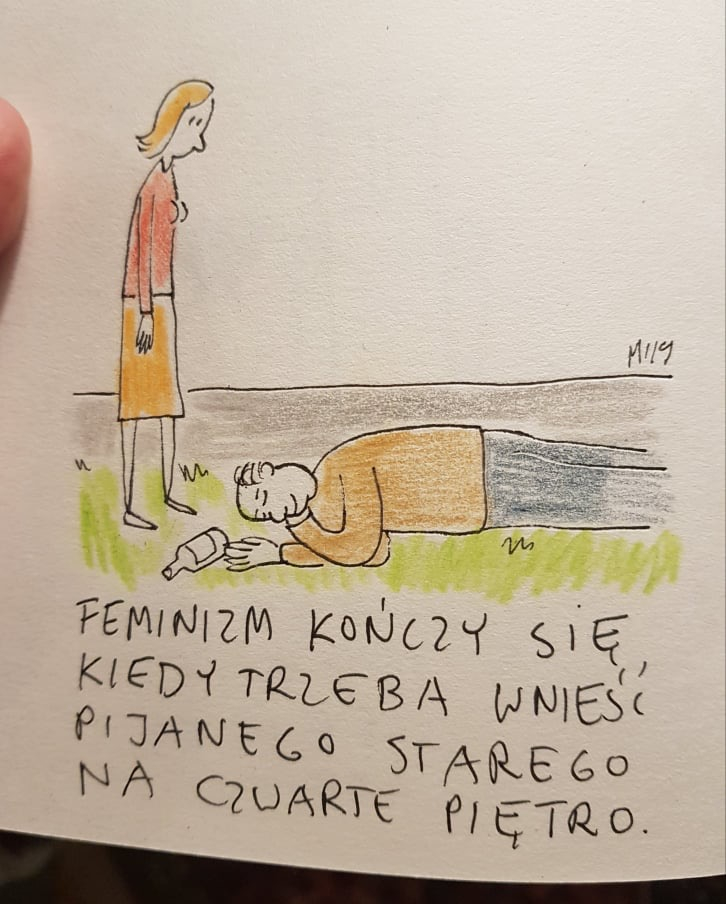 FEMINIZM KOŃCZY SIĘ,
KIEDY TRZEBA WNIEŚĆ
PIJANEGO STAREGO
NA CZWARTE PIĘTRO.